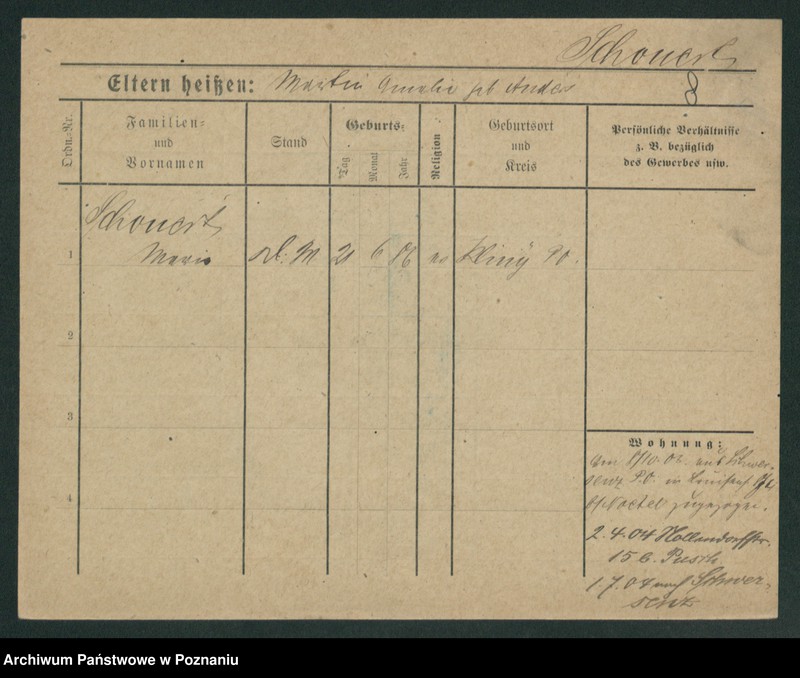 Schonert
8
Eltern heißen: Martin Amalie geb Andes
Ordn.-Nr.
Familien- und Vornamen
Stand
Geburts-
Tag
Monat
Jahr
Religion
Geburtsort und Kreis
Persönliche Verhältnisse z. B. bezüglich des Gewerbes usw.
Schonert
1 Marie D. M 21 6 86 ev PO.
2
3
4
Wohnung:
am 8/10.03. aus Schwer-
senz P.O. in
b/ zugezogen.
2.4.04 Hollendorffstr.
15 b.
1.7.04 nach Schwer-
senz
Archiwum Państwowe w Poznaniu